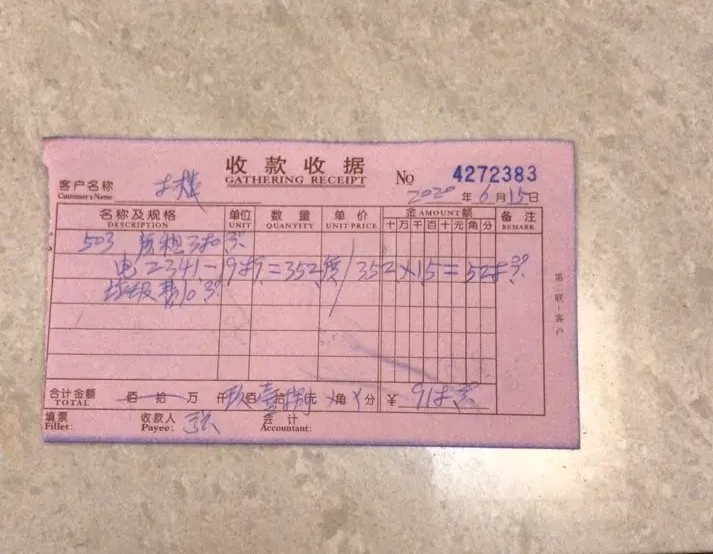 收款收据
GATHERING RECEIPT
No 4272383
客户名称
Customer's Name
2020年6月15日
名称及规格 单位 数量 单价 金AMOUNT额 备注
DESCRIPTION UNIT QUANTITY UNIT PRICE 十万千百十元角分 REMARK
503 房租380元
电2341-1989=352度/352×1.5=528元
垃圾费10元
第二联:客户
合计金额 百拾万仟玖百壹拾捌元×角×分 ¥918元
TOTAL
填票 收款人 会计
Filler: Payee: Accountant: